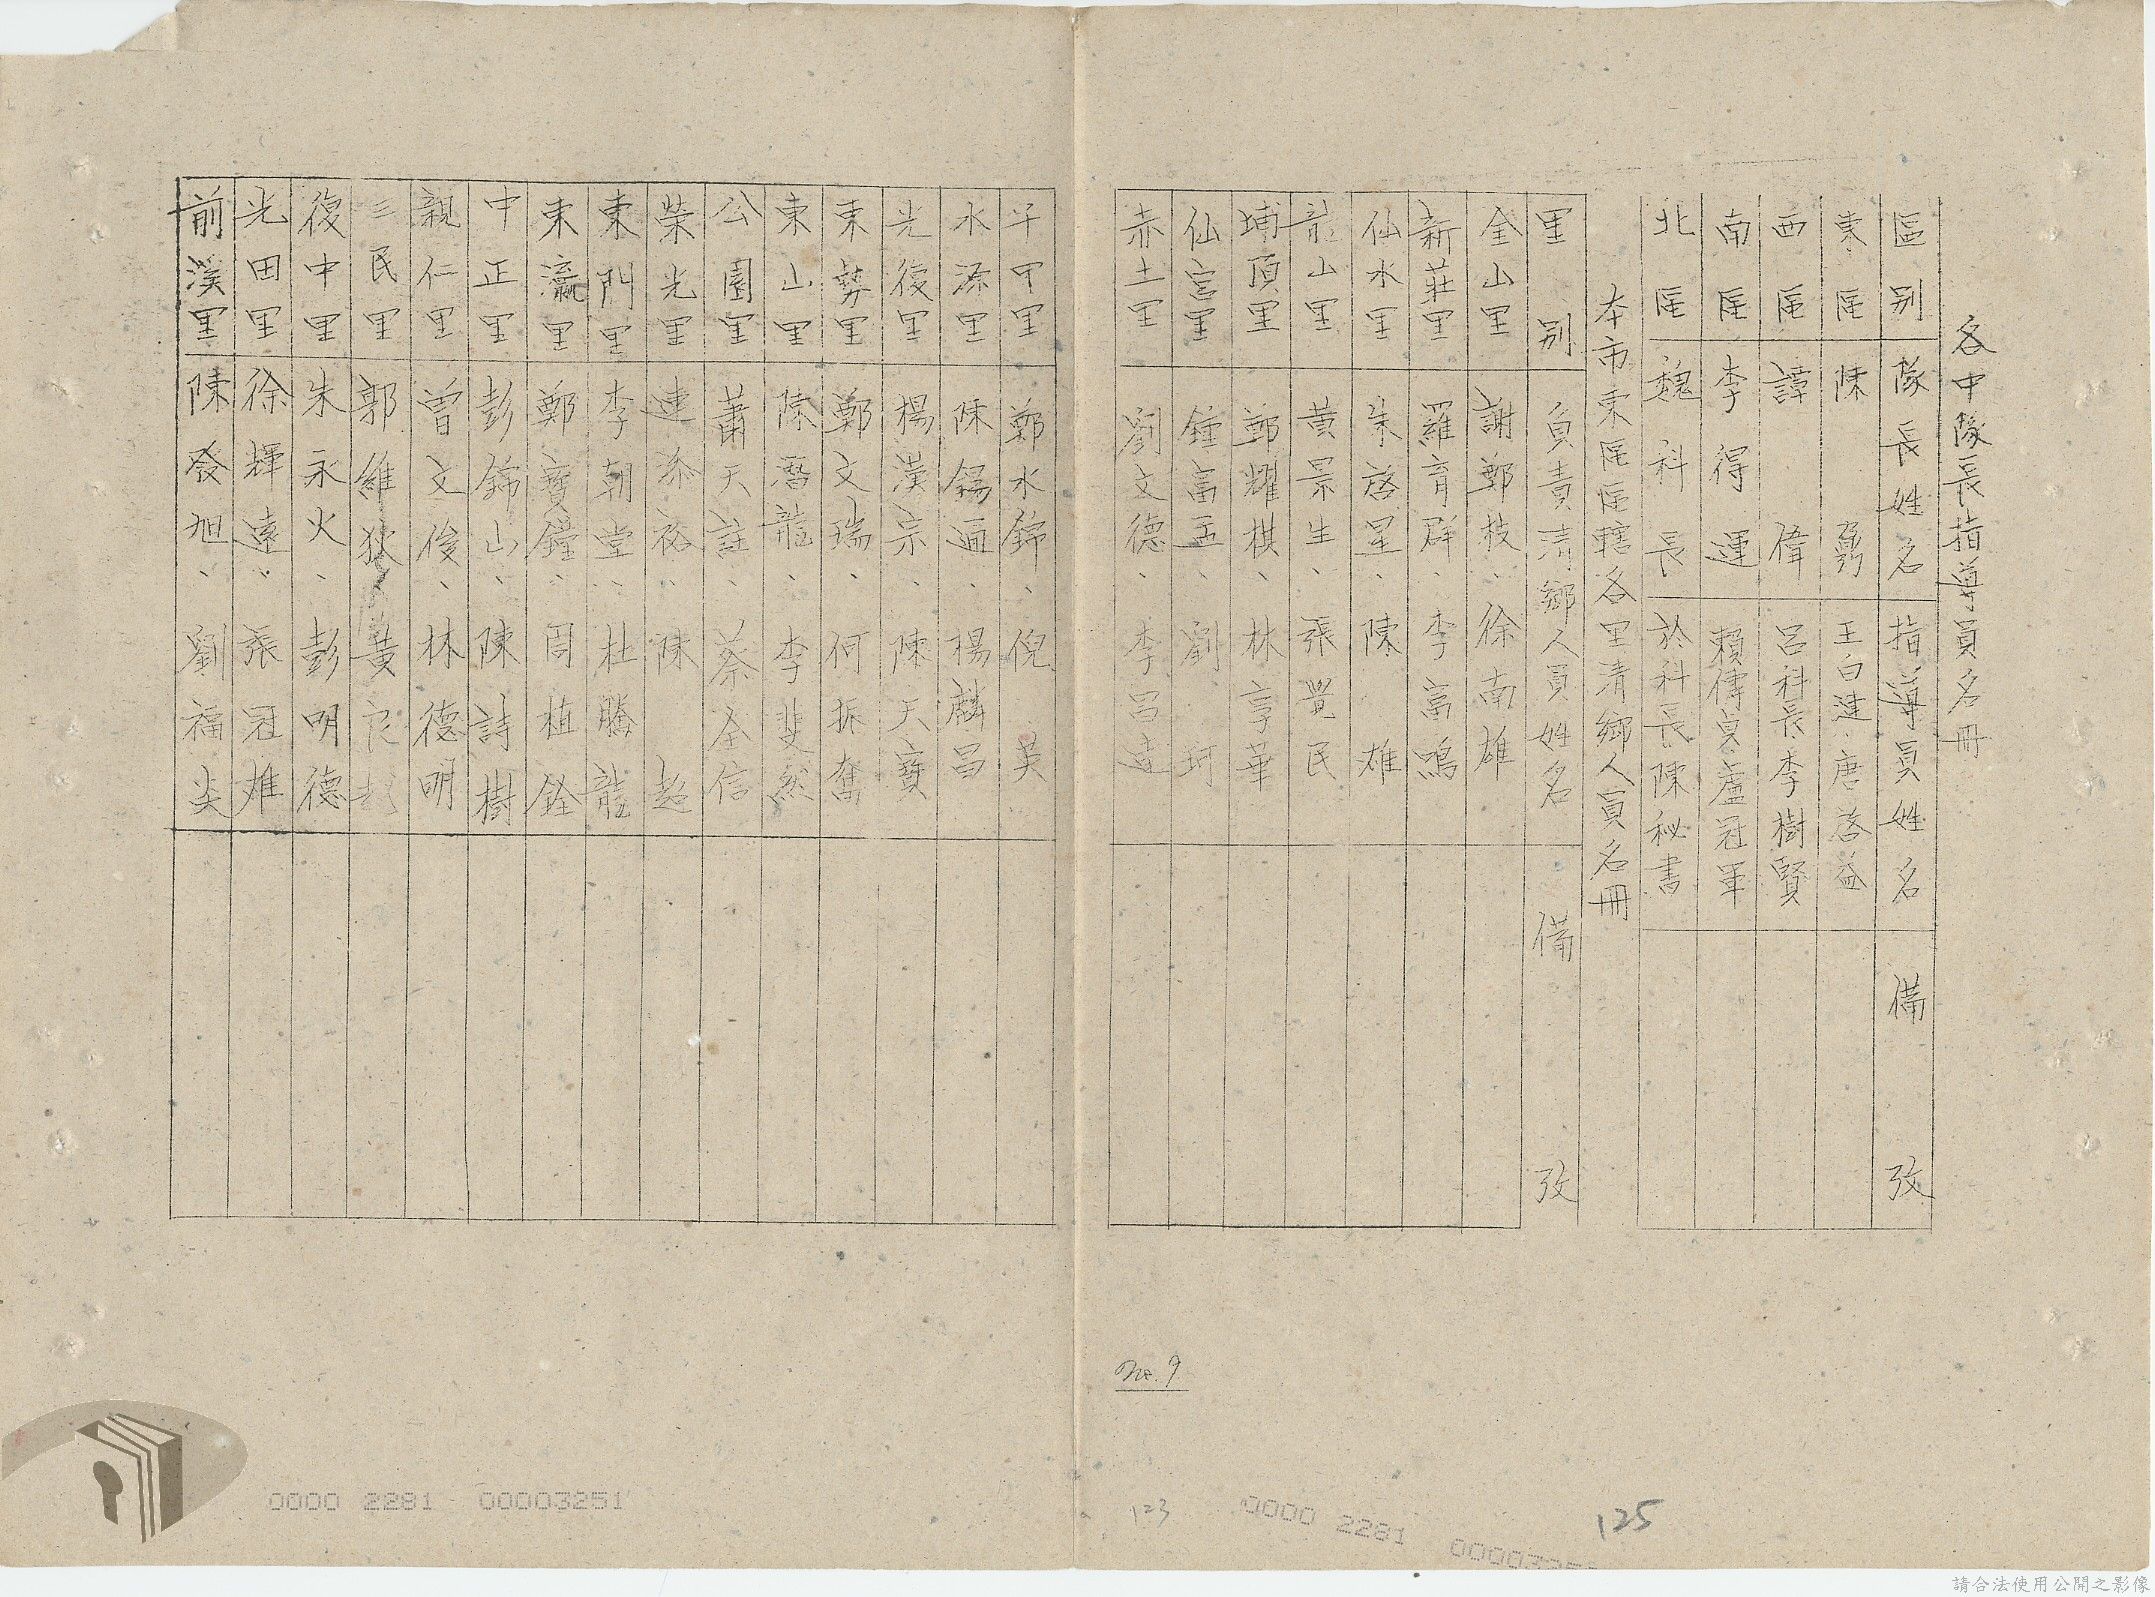 各中隊長指導員名冊
區別 隊長姓名 指導員姓名 備攷
東區 陳 王白 唐啓益
西區 譚偉 呂科長 李樹賢
南區 李得運 賴傳貞、盧冠軍
北區 魏科長 於科長、陳秘書
本市東區區轄各里清鄉人員名冊
里別 負責清鄉人員姓名 備攷
金山里 謝鄭枝、徐南雄
新莊里 羅育群、李富鳴
仙水里 朱啓星、陳雄
龍山里 黃景生、張覺民
埔頂里 鄭耀棋、林享華
仙宮里 鍾富玉、劉珂
赤土里 劉文德、李昌達
千甲里 鄭水錦、倪英
水源里 陳錫 楊麟昌
光復里 楊漢宗、陳天寶
東勢里 鄭文瑞、何振奮
東山里 陳潛龍、李斐然
公園里 蕭天註、蔡金信
榮光里 連添裕、陳超
東門里 李朝堂、杜騰龍
東瀛里 鄭寶鐘、周植銓
中正里 彭錦山、陳詩樹
親仁里 曾文俊、林德明
三民里 郭維狄 黃
復中里 朱永火、彭明德
光田里 徐輝遠、張冠雄
前溪里 陳發旭、劉福炎
No. 9
0000 2281 00003251
123
0000 2281
125
請合法使用公開之影像